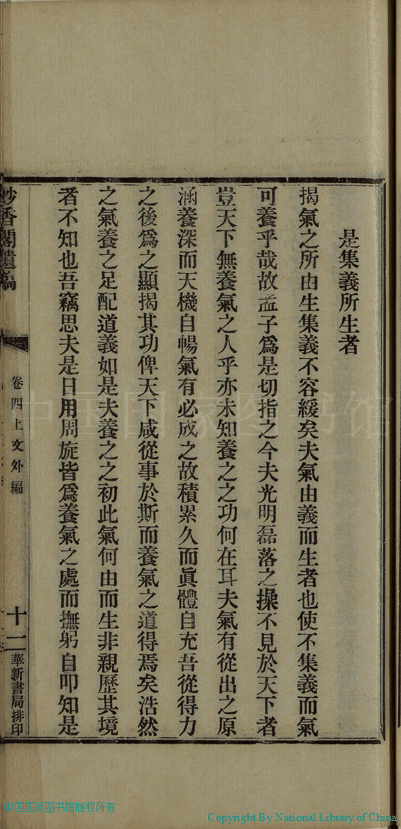 是集義所生者
揭氣之所由生集義不容緩矣夫氣由義而生者也使不集義而氣
可養乎哉故孟子爲是切指之今夫光明磊落之操不見於天下者
豈天下無養氣之人乎亦未知養之之功何在耳夫氣有從出之原
涵養深而天機自暢氣有必成之故積累久而眞體自充吾從得力
之後爲之顯揭其功俾天下咸從事於斯而養氣之道得焉矣浩然
之氣養之足配道義如是夫養之之初此氣何由而生非親歷其境
者不知也吾竊思夫是日用周旋皆爲養氣之處而撫躬自叩知是
妙香閣遺稿
卷四上文外編
十二
華新書局排印
中国国家图书馆版权所有
Copyright By National Library of China
中国国家图书馆